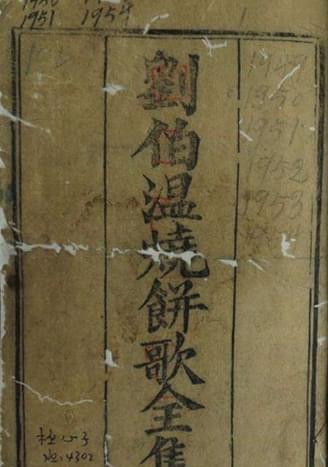 1951 1954
劉伯温燒餅歌全集
1950
1951
1952
1953